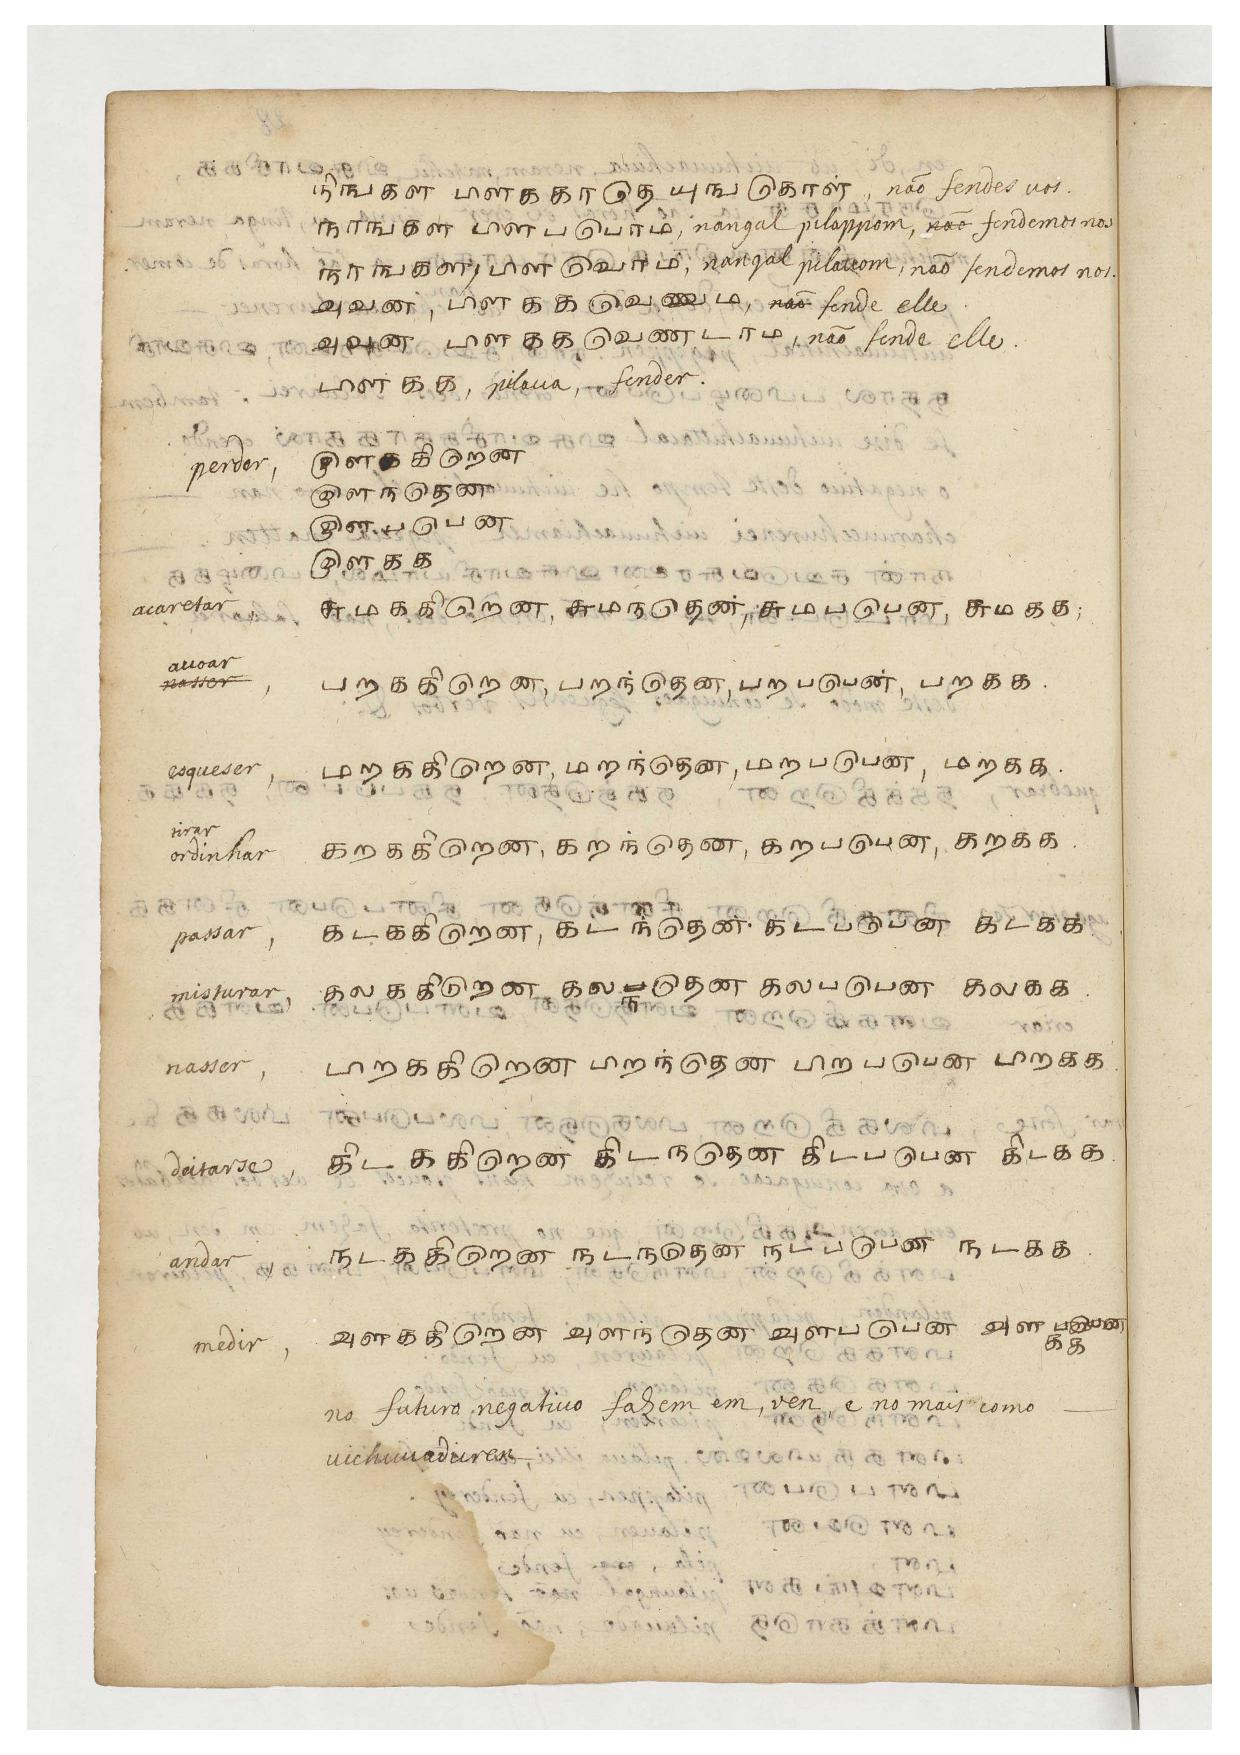 நிஙகள பிளககாதெ யுஙகொள், não fendes vos.
நாஙகள பிளபபொம, nangal pilappom, não fendemos nos
நாஙகள பிளவொம, nangal pilauom, não fendemos nos.
அவன, பிளகக, não fende elle
அவன பிளககவெணடாம, não fende elle.
பிளகக, pilaca, fender.
perder, இளககிறென
இளநதென
இளபபென
இளகக
acaretar சுமககிறென, சுமநதென, சுமபபென, சுமகக;
auoar
nasser, பறககிறென, பறந்தென, பறபபென், பறகக.
esqueser, மறககிறென, மறந்தென, மறபபென, மறகக.
tirar
ordinhar கறககிறென, கறந்தென, கறபபென, கறகக.
passar, கடககிறென, கடந்தென. கடபபென கடகக
misturar, கலககிறென, கலநதென கலபபென கலகக.
nasser, பிறககிறென பிறந்தென பிறபபென பிறகக.
deitarse, கிடககிறென கிடநதென கிடபபென கிடகக
andar, நடககிறென நடநதென நடபபென நடகக.
medir, அளககிறென அளந்தென அளபபென அளகக
no futuro negatiuo fazem em, ven, e no mais como
uichuuaduren,